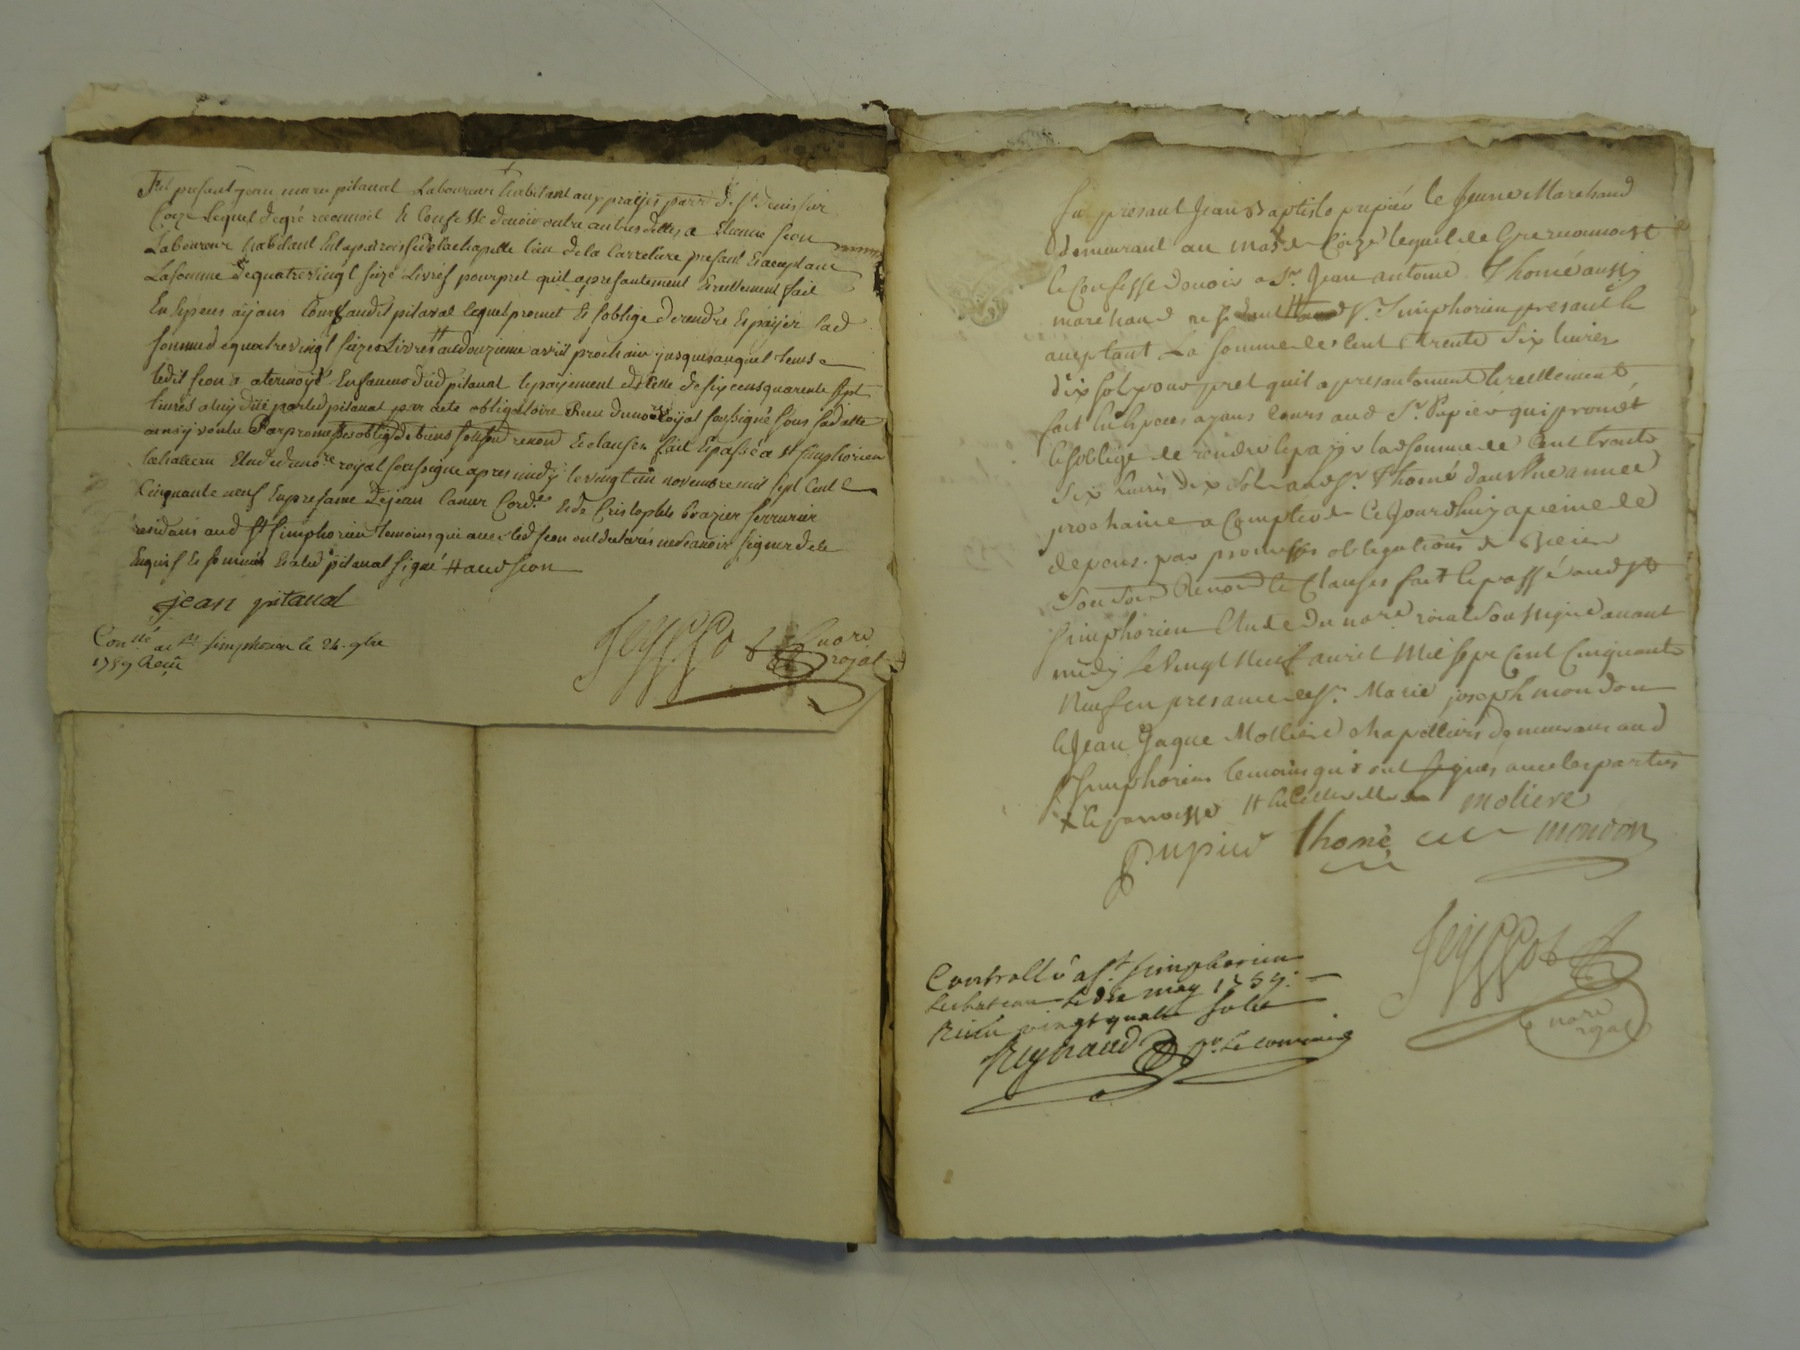 Fut presant jean marie pitaval Laboureur habitant aux prajes parr.e de st denis sur
Coize Lequel de gré reconnoit Et Confesse devoir outre autres dettes a Etienne feon
Laboureur habitant en la parroisse de la chapelle lieu de la Carreliere presant Et aceptant
La somme de quatre vingt seize Livres pour pret quil a presantement Et reellement fait
En Especes ayans Cours audit pitaval lequel promet Et soblige de rendre Et payer lad
somme de quatre vingt seize Livres # au douzieme avril prochain jusques auquel tems
ledit feon a atermoyé En faveur dud pitaval le payement de Celle de six cens quarente sept
livres a luy düe par led pitaval par acte obligatoire Receu du no.re royal soussigné sous sa datte
ainsy voulu Par promesses oblig. de biens soum renon Et clauses fait Et passé a st simphorien
le hateau Etude du no.re royal soussigné apres midy le vingt un novembre mil sept Cent
Cinquante neuf En presance de jean Cord.r Et de Cristophle brazier serrurier
residans aud st simphorien temoins qui avec led feon ont declarés ne scavoir signer de ce
Enquis Et sommés Et a led pitaval signé # aud feon
jean pitaval
Con.llé a st simphorien le 24 9bre
1759 Reçü
Feyssot
nore
royal
Fu presant Jean Baptiste pupier le Jeune Marchand
demeurant au mas de Coize lequel de Gre reconnoist
Et Confesse devoir a Sr. Jean antoine Thomé aussy
marchand resident aud St. Simphorien presant Et
aceptant La somme de Cent trente Six livres
dix sols pour pret quil a presantement Et reellement
fait En Especes ayans Cours aud Sr Pupier qui promet
Et soblige de rendre Et payer lad somme de Cent trente
Six livres dix sols aud Sr. Thomé dans Une année
prochaine a Compter de Ce Jourdhuy a peine de
depens par promesses obligations de Biens
Soum Renon Et Clauses fait Et passé aud St
simphorien Etude du nore roial Soussigné avant
midy le Vingt Neuf avril Mil sept Cent Cinquante
Neuf en presance de Sr. Marie joseph mondon
Et Jean Jaque Molliere chapelliers demeurans aud
St Simphorien temoins qui ont signés avec les parties
molliere
Pupier thomé mondon
Feyssot
nore
royal
Controllé a St. simphorien
le chateau le may 1759.
Reçu vingt quatre sols
Reynaud pr. le commis